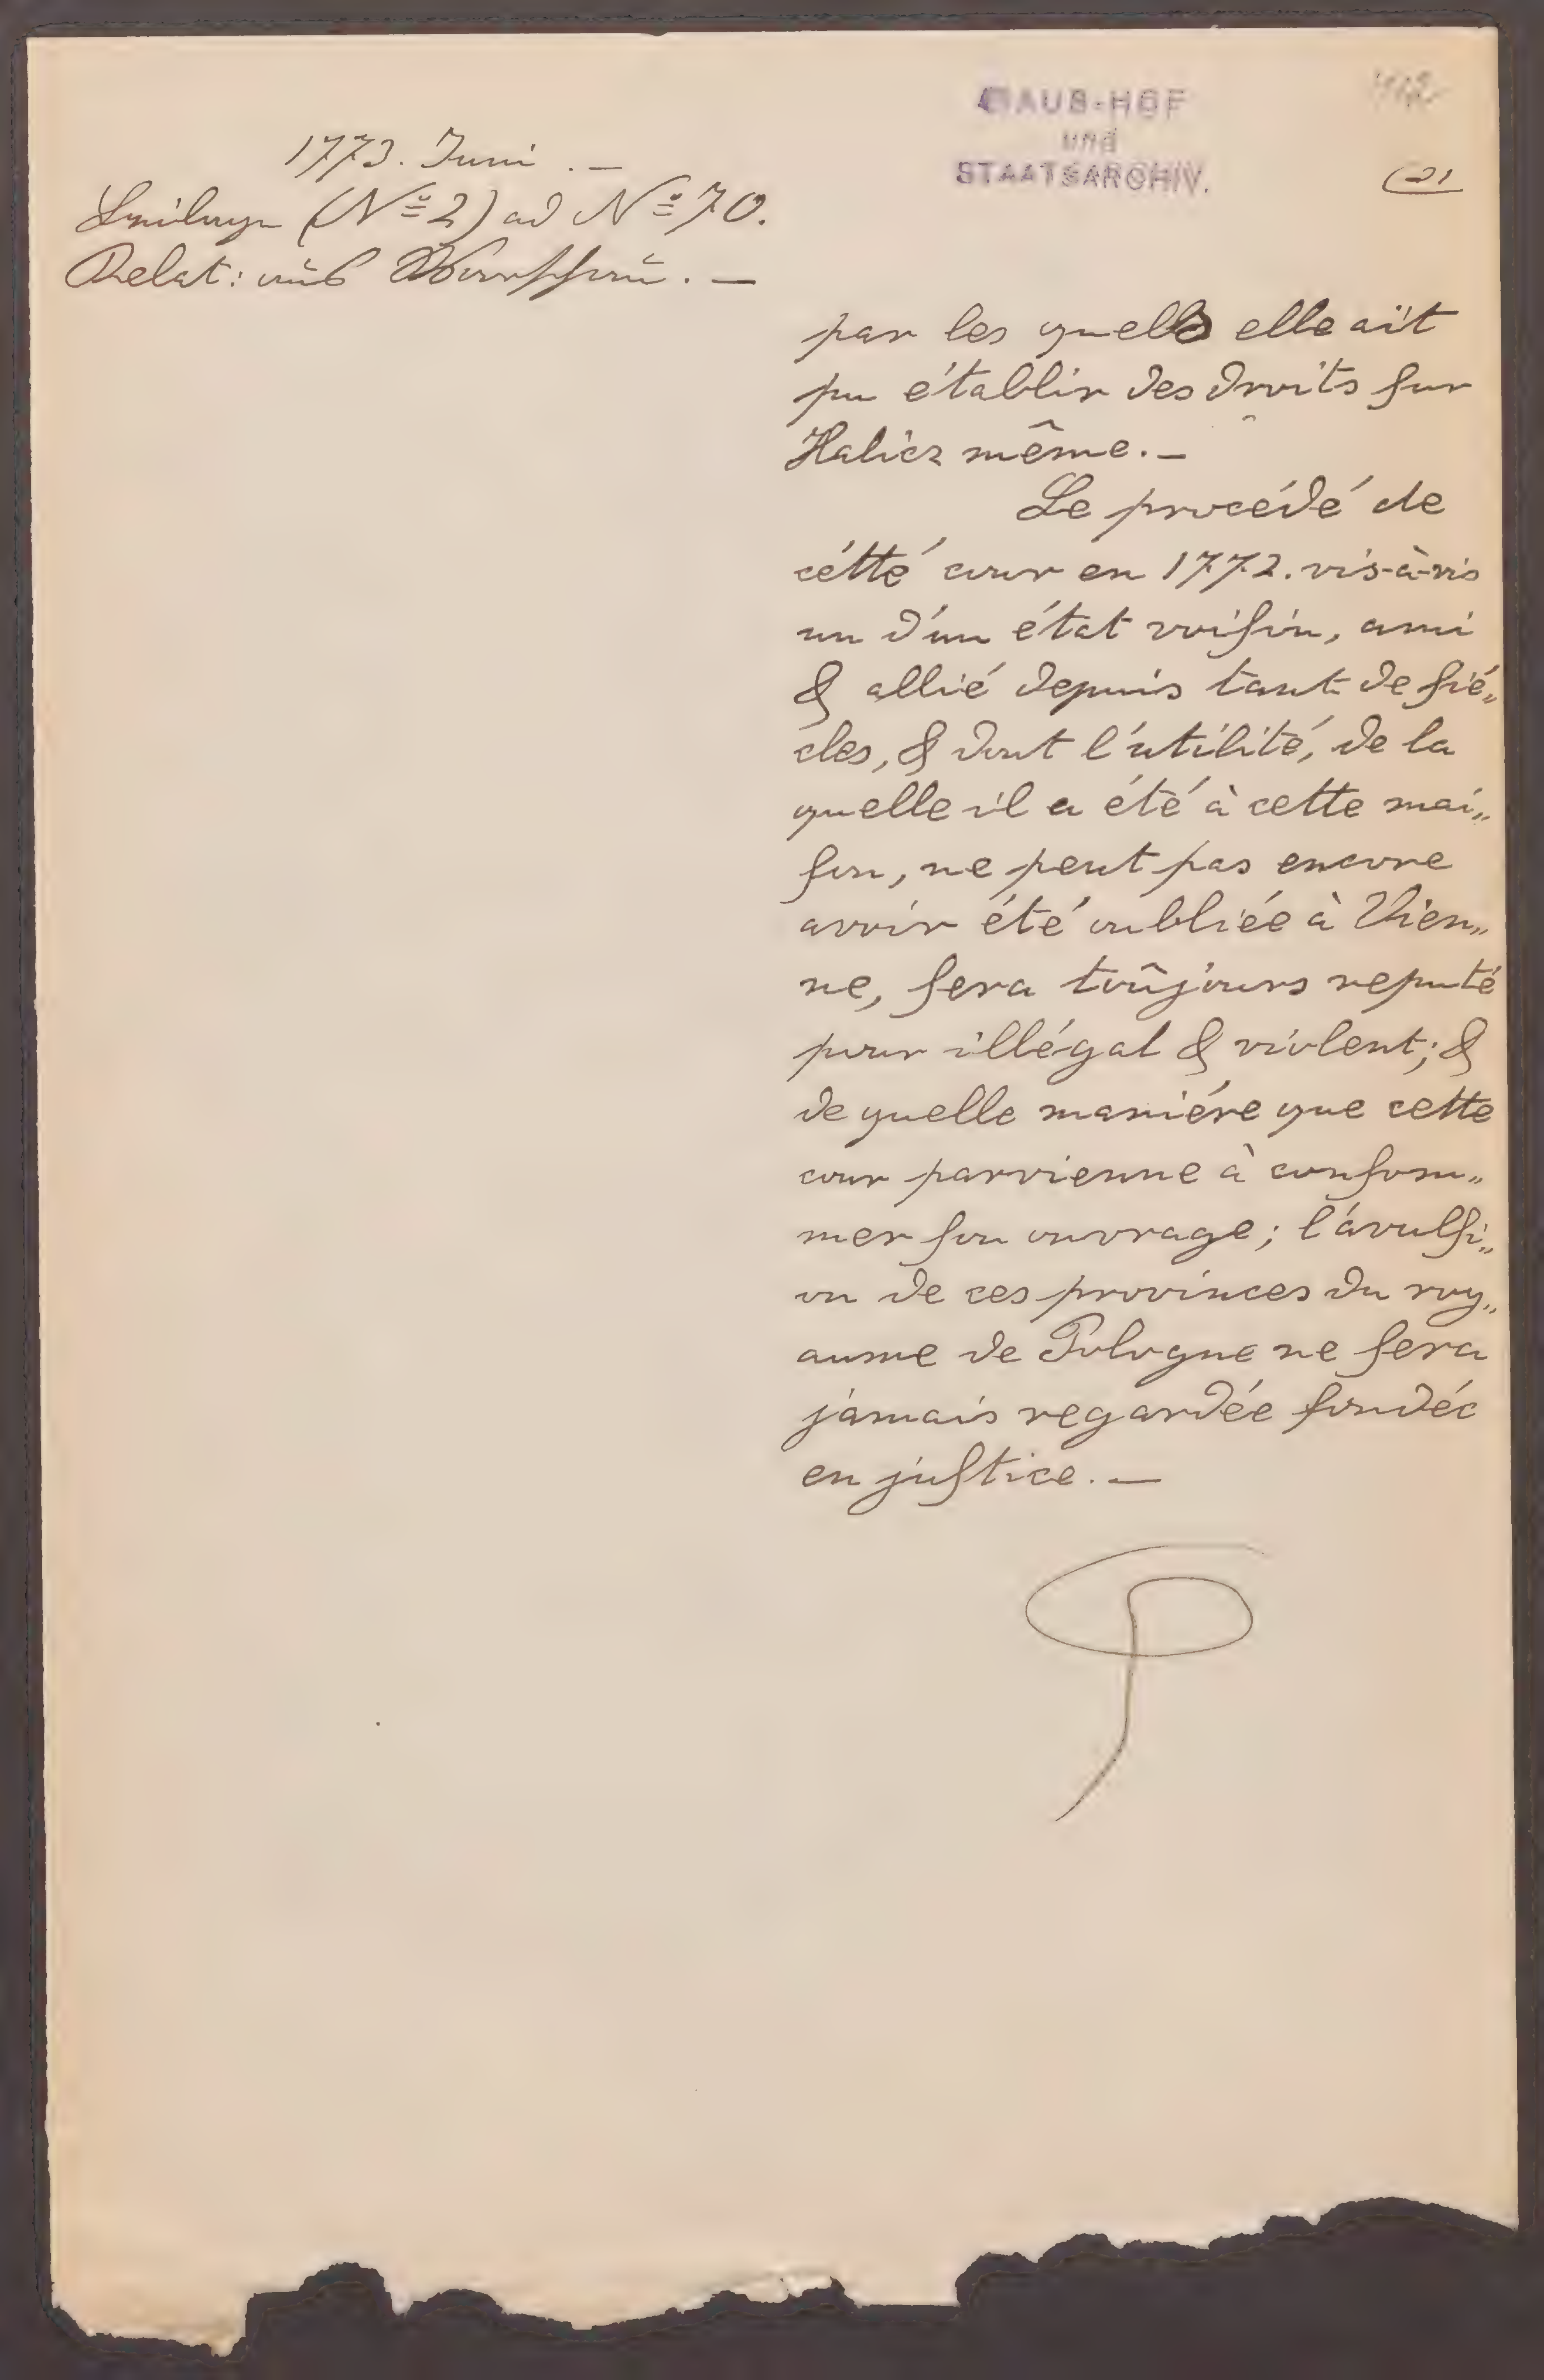 HAUS-HOF
und
STAATSARCHIV.
21
1773. Juni . —
Beilage (Nº 2) ad Nº 70.
Relat: aus Warschau. —
par les quells elle ait
pu établir des droits sur
Halicz même. —
Le procédé de
cétté cour en 1772. vis-à-vis
un d'un état voisin, ami
& allié depuis tant de sié„
cles, & dont l'utilité, de la
quelle il a été à cette mai„
son, ne peut pas encore
avoir été oubliée à Vien„
ne, sera toûjours reputé
pour illégal & violent; &
de quelle maniére que cette
cour parvienne à consom„
mer son ouvrage; l'ávulsi„
on de ces provinces du roy„
aume de Pologne ne sera
jamais regardée fondée
en justice. —